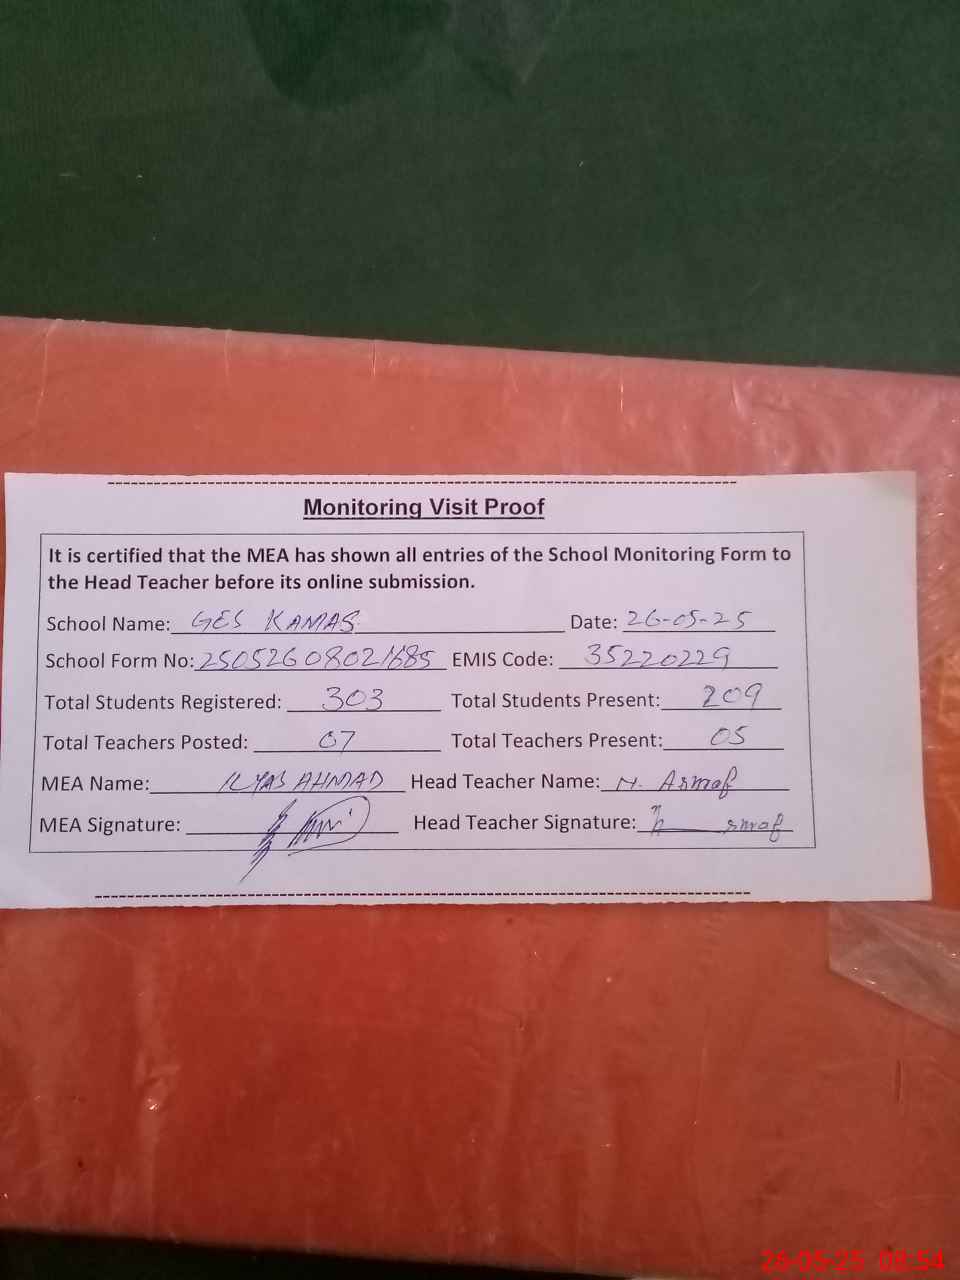 Monitoring Visit Proof
It is certified that the MEA has shown all entries of the School Monitoring Form to
the Head Teacher before its online submission.
School Name: GES KAMAS Date: 26-05-25
School Form No: 25052608021685 EMIS Code: 35220229
Total Students Registered: 303 Total Students Present: 209
Total Teachers Posted: 07 Total Teachers Present: 05
MEA Name: ILYAS AHMAD Head Teacher Name: M. Ashraf
MEA Signature: Head Teacher Signature:
26-05-25 08:54